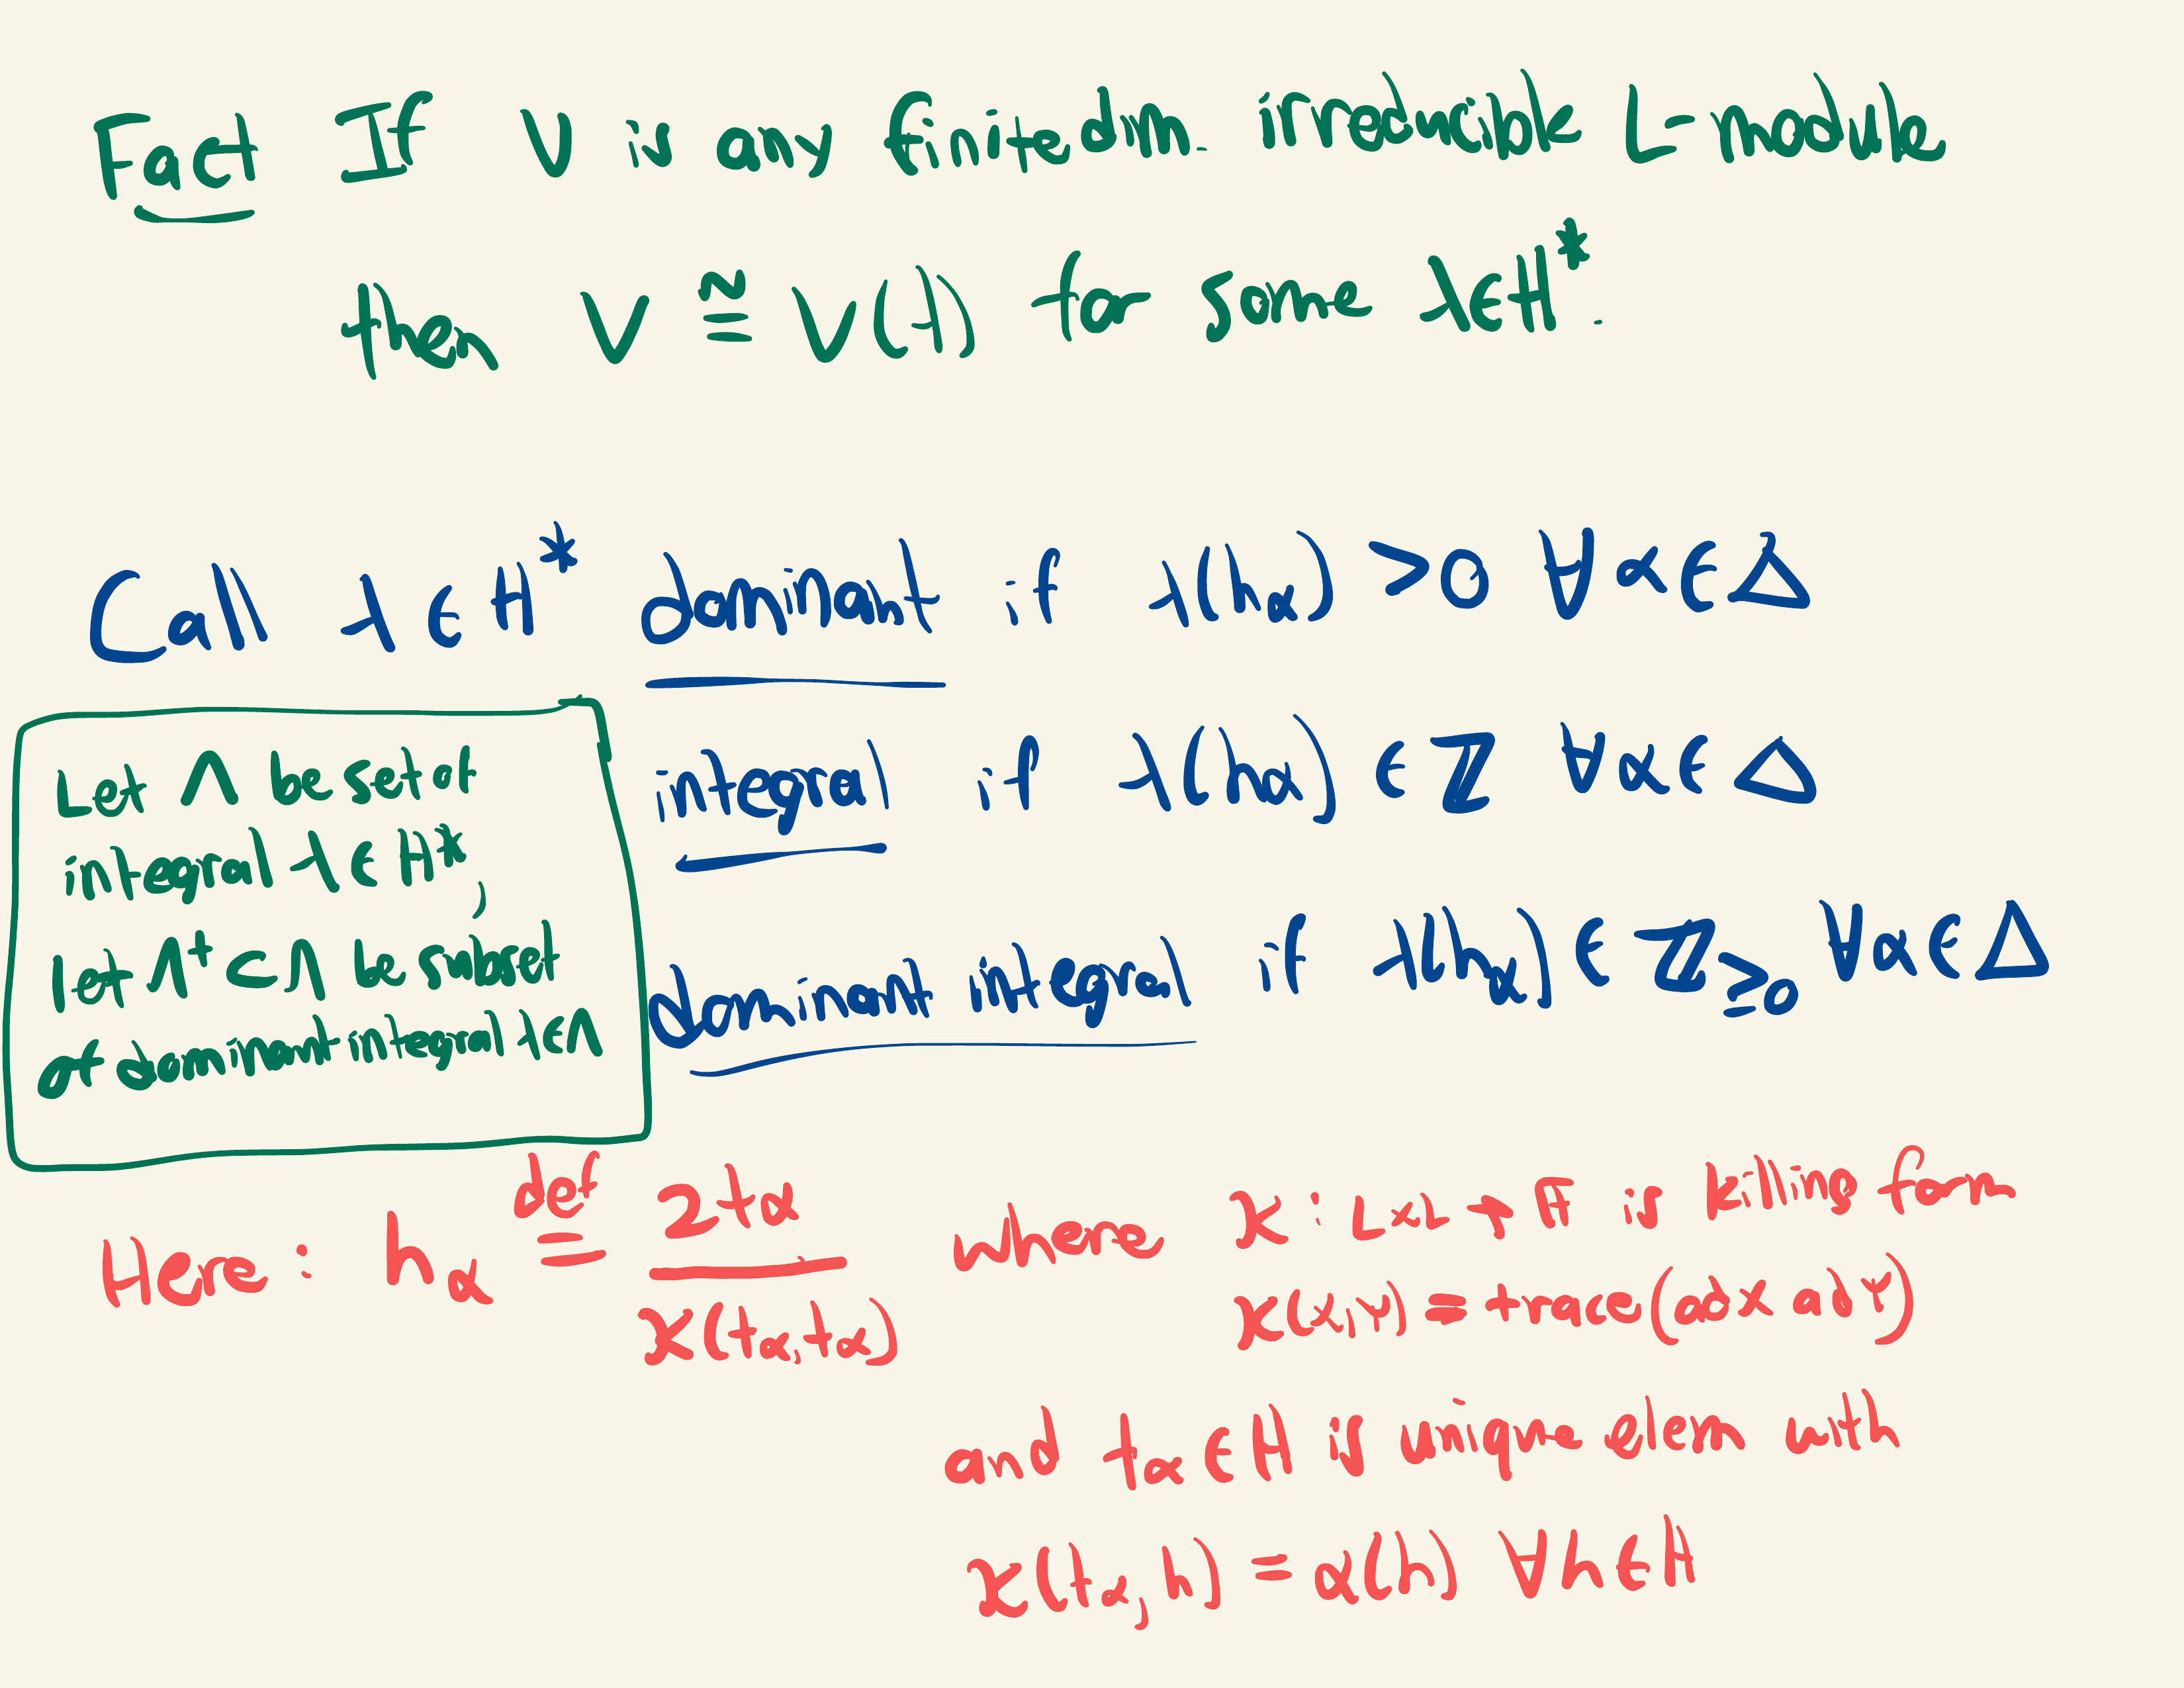 Fact If V is any finite dim. irreducible L-module
then V ≅ V(λ) for some λ∈H*.
Call λ ∈ H* dominant if λ(hα) >0 ∀ α∈Δ
integral if λ(hα) ∈ ℤ ∀α∈ Δ
dominant integral if λ(hα) ∈ ℤ≥0 ∀α∈Δ
Let Λ be set of
integral λ∈H*,
let Λ⁺⊂Λ be subset
of dominant integral λ∈Λ
Here: hα =def 2tα / κ(tα,tα) where κ: L×L → 𝔽 is killing form
κ(x,y) = trace(adx ady)
and tα∈H is unique elem with
κ(tα,h) = α(h) ∀h∈H